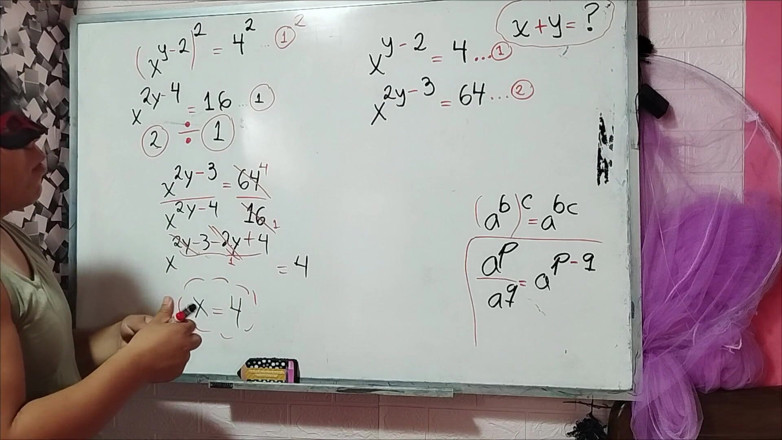 (x^{y-2})^2 = 4^2 ... ①^2
x^{2y-4} = 16 ... ①
② ÷ ①
x^{2y-3} = 64 4
x^{2y-4} 16 1
x^{2y-3-2y+4} = 4
1
x = 4
x + y = ?
x^{y-2} = 4 ... ①
x^{2y-3} = 64 ... ②
(a^b)^c = a^{bc}
a^p / a^q = a^{p-q}